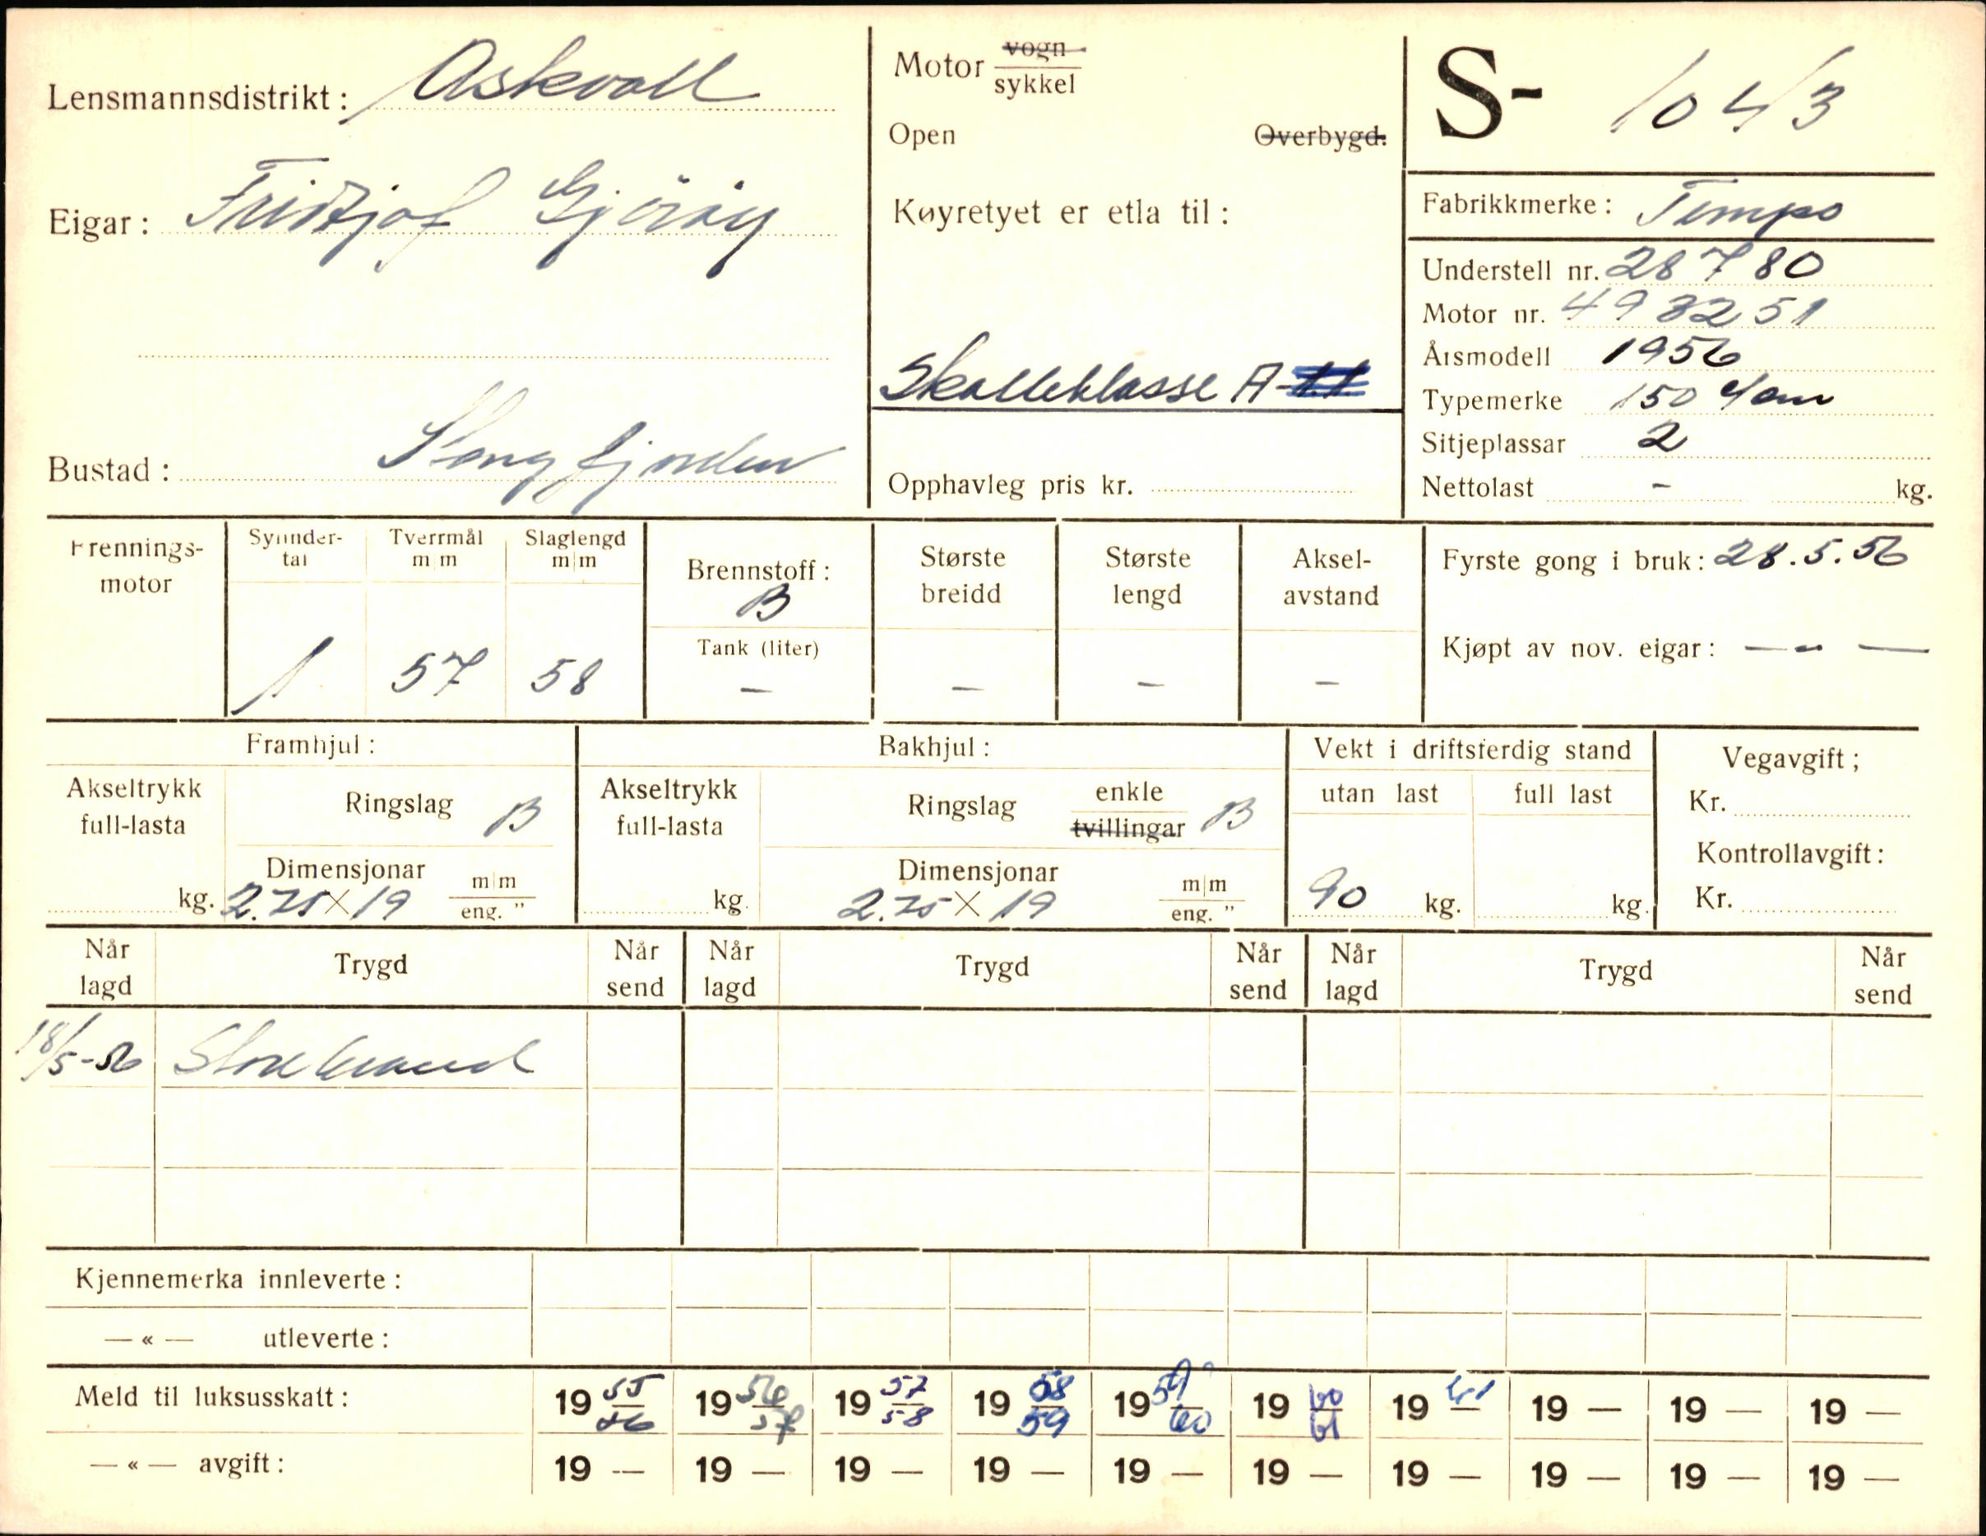 Lensmannsdistrikt: Askvoll
Motor vogn
sykkel
S- 1043
Open Overbygd.
Eigar: Fridtjof
Køyretyet er etla til:
Fabrikkmerke: Tempo
Understell nr. 28780
Motor nr. 4932251
Årsmodell 1956
Skatteklasse A
Typemerke 150
Sitjeplassar 2
Bustad: Stongfjorden
Opphavleg pris kr.
Nettolast - kg.
Frennings-
motor
Sylinder-
tal
Tverrmål
m|m
Slaglengd
m|m
Brennstoff:
B
Tank (liter)
Største
breidd
Største
lengd
Aksel-
avstand
Fyrste gong i bruk: 28.5.56
Kjøpt av nov. eigar: — - —
1 57 58 - - - -
Framhjul:
Bakhjul:
Vekt i driftsferdig stand
Vegavgift;
Akseltrykk
full-lasta
Ringslag B
Akseltrykk
full-lasta
Ringslag enkle
tvillingar B
utan last full last
Kr.
Kontrollavgift:
kg. Dimensjonar
2.75 X 19 m|m
eng. "
kg. Dimensjonar
2.75 X 19 m|m
eng. "
90 kg. kg.
Kr.
Når
lagd Trygd Når
send Når
lagd Trygd Når
send Når
lagd Trygd Når
send
18/5-56 Storebrand
Kjennemerka innleverte:
— « — utleverte:
Meld til luksusskatt: 19 55/56 19 56/57 19 57/58 19 58/59 19 59/60 19 60/61 19 61 19 — 19 — 19 —
— « — avgift: 19 — 19 — 19 — 19 — 19 — 19 — 19 — 19 — 19 — 19 —